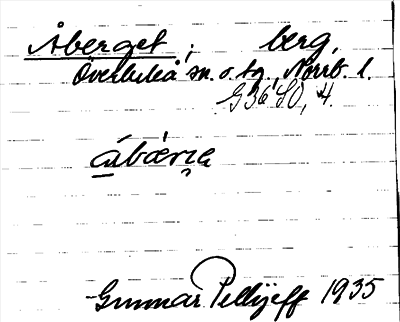 Åberget; berg,
Överluleå sn. o. tg., Norrb. l.
G36 SO, 4
Gunnar Pellijeff 1935